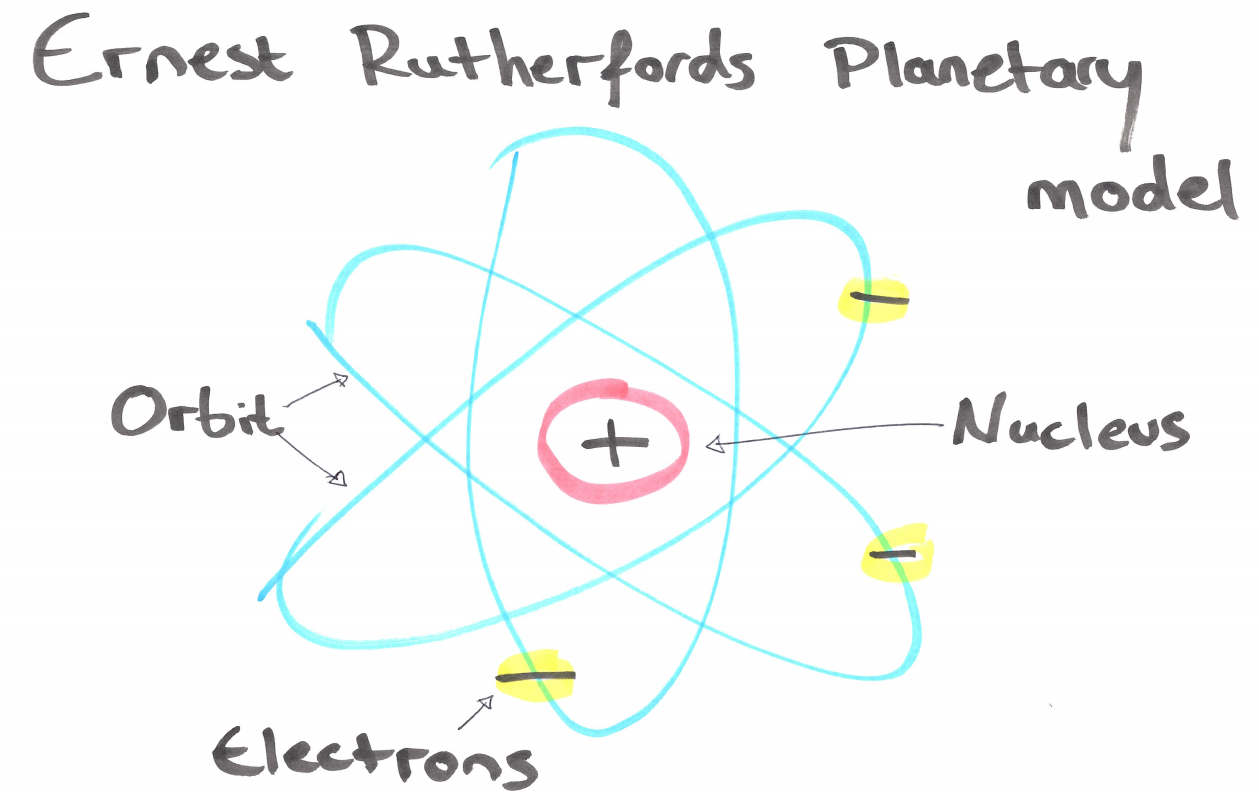 Ernest Rutherfords Planetary
model
−
Orbit
+
Nucleus
−
−
Electrons